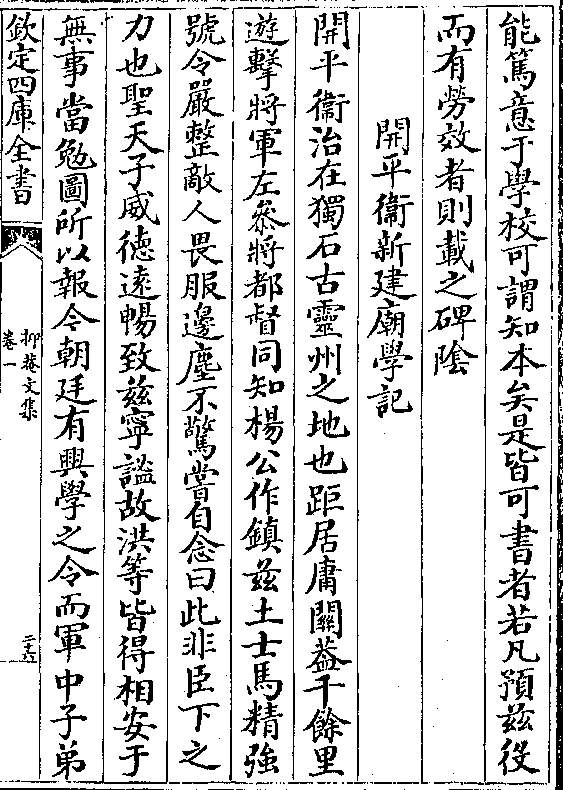 能篤意于學校可謂知本矣是皆可書者若凡預兹役
而有勞效者則載之碑隂
開平衞新建廟學記
開平衞治在獨石古靈州之地也距居庸關葢千餘里
遊擊將軍左叅將都督同知楊公作鎮兹土士馬精強
號令嚴整敵人畏服邊塵不驚嘗自念曰此非臣下之
力也聖天子威德遠暢致兹寧謐故洪等皆得相安于
無事當勉圖所以報今朝廷有興學之令而軍中子弟
欽定四庫全書
抑菴文集
卷一
二十六